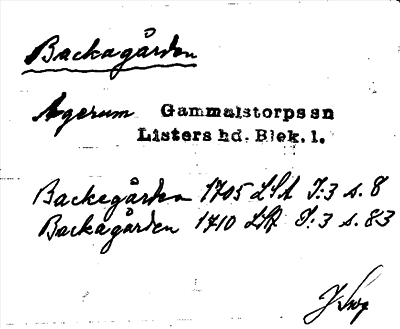 Backagården
Agerum Gammalstorps sn
Listers hd. Blek. l.
Backegården 1705 LSA I:3 s. 8
Backagården 1710 LSA I:3 s. 83